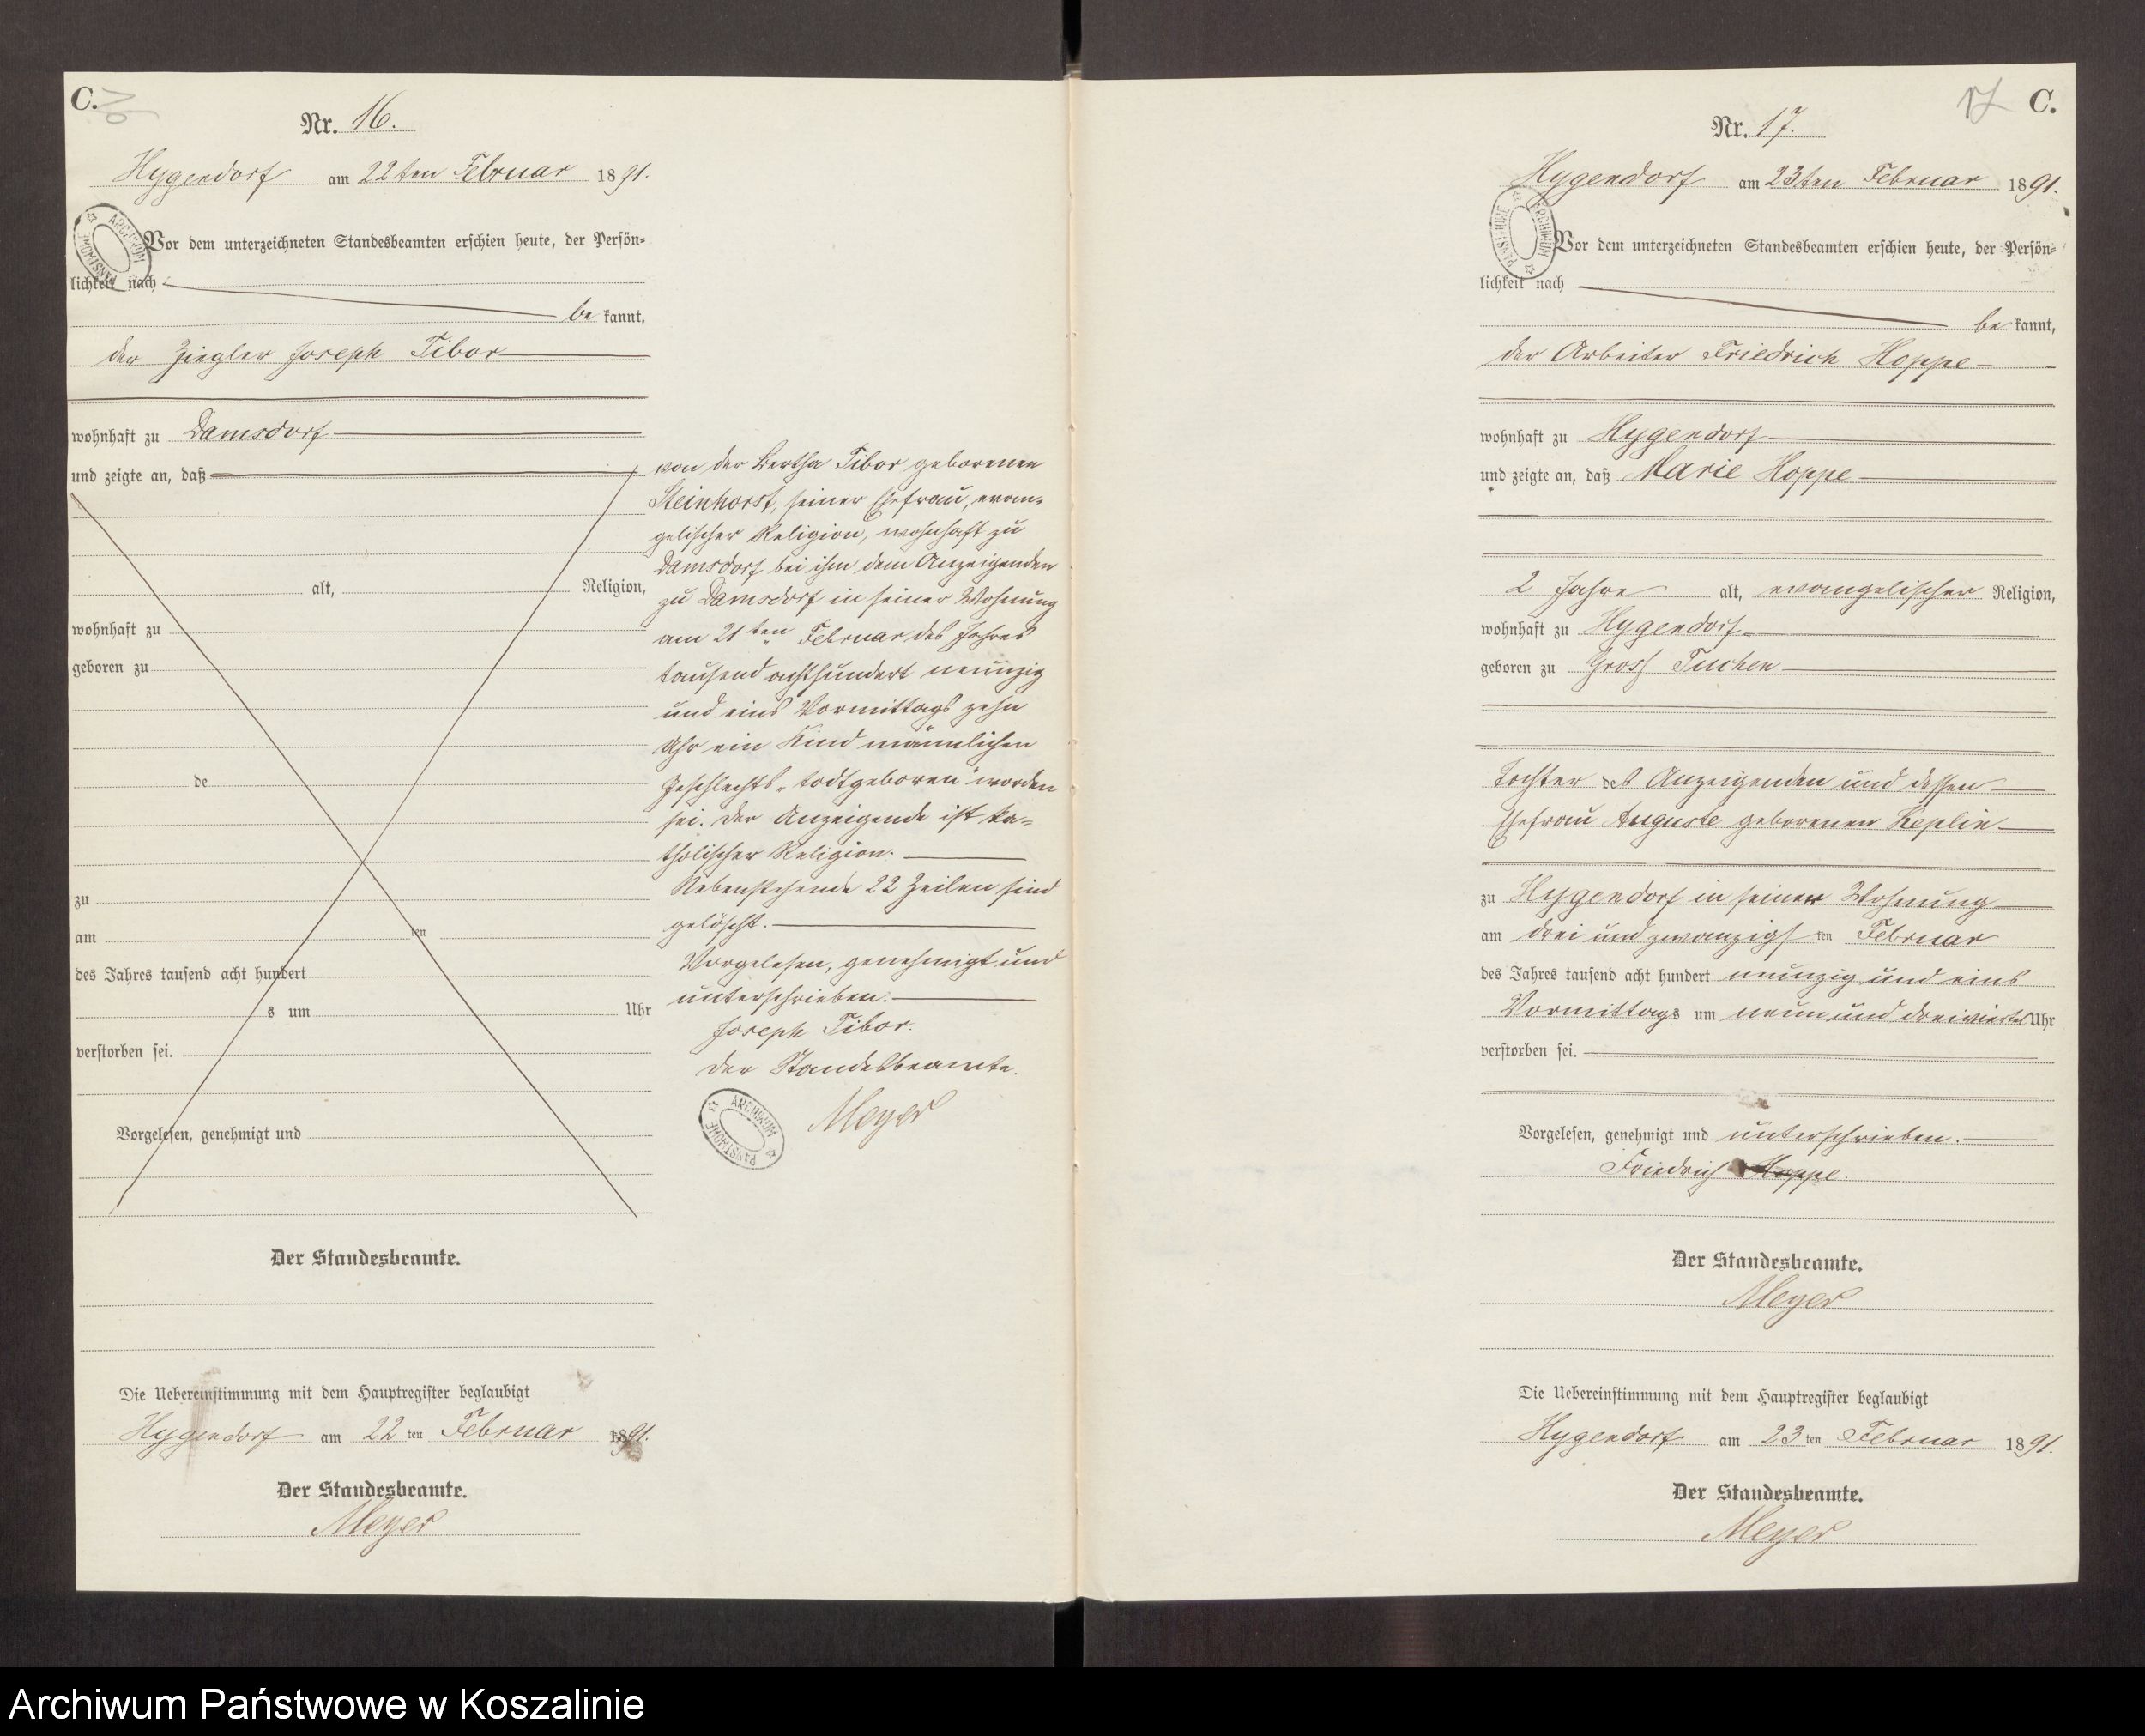 C.
Nr. 16.
Hygendorf am 22ten Februar 1891.
Vor dem unterzeichneten Standesbeamten erschien heute, der Persön-
lichkeit nach
be kannt,
der Ziegler Joseph Tibor
wohnhaft zu Damsdorf
und zeigte an, daß
alt, Religion,
wohnhaft zu
geboren zu
de
zu
am ten
des Jahres tausend acht hundert
s um Uhr
verstorben sei.
Vorgelesen, genehmigt und
Der Standesbeamte.
Die Uebereinstimmung mit dem Hauptregister beglaubigt
Hygendorf am 22 ten Februar 1891.
Der Standesbeamte.
Meyer
von der Bertha Tibor geborenen
Steinhorst, seiner Ehefrau, evan-
gelischer Religion, wohnhaft zu
Damsdorf bei ihm dem Anzeigenden
zu Damsdorf in seiner Wohnung
am 21ten Februar des Jahres
tausend achthundert neunzig
und eins Vormittags zehn
Uhr ein Kind männlichen
Geschlechts "todtgeboren" worden
sei. Der Anzeigende ist ka-
tholischer Religion.
Nebenstehende 22 Zeilen sind
gelöscht.
Vorgelesen, genehmigt und
unterschrieben.
Joseph Tibor.
Der Standesbeamte.
Meyer
ARCHIWUM PAŃSTWOWE
17 C.
Nr. 17.
Hygendorf am 23ten Februar 1891.
Vor dem unterzeichneten Standesbeamten erschien heute, der Persön-
lichkeit nach
be kannt,
der Arbeiter Friedrich Hoppe
wohnhaft zu Hygendorf
und zeigte an, daß Marie Hoppe
2 Jahre alt, evangelischer Religion,
wohnhaft zu Hygendorf
geboren zu Gross Tuchen
Tochter des Anzeigenden und dessen
Ehefrau Auguste geborenen Keplin
zu Hygendorf in seiner Wohnung
am drei und zwanzigsten Februar
des Jahres tausend acht hundert neunzig und eins
Vormittags um neun und dreiviertel Uhr
verstorben sei.
Vorgelesen, genehmigt und unterschrieben.
Friedrich Hoppe.
Der Standesbeamte.
Meyer
Die Uebereinstimmung mit dem Hauptregister beglaubigt
Hygendorf am 23 ten Februar 1891.
Der Standesbeamte.
Meyer
Archiwum Państwowe w Koszalinie